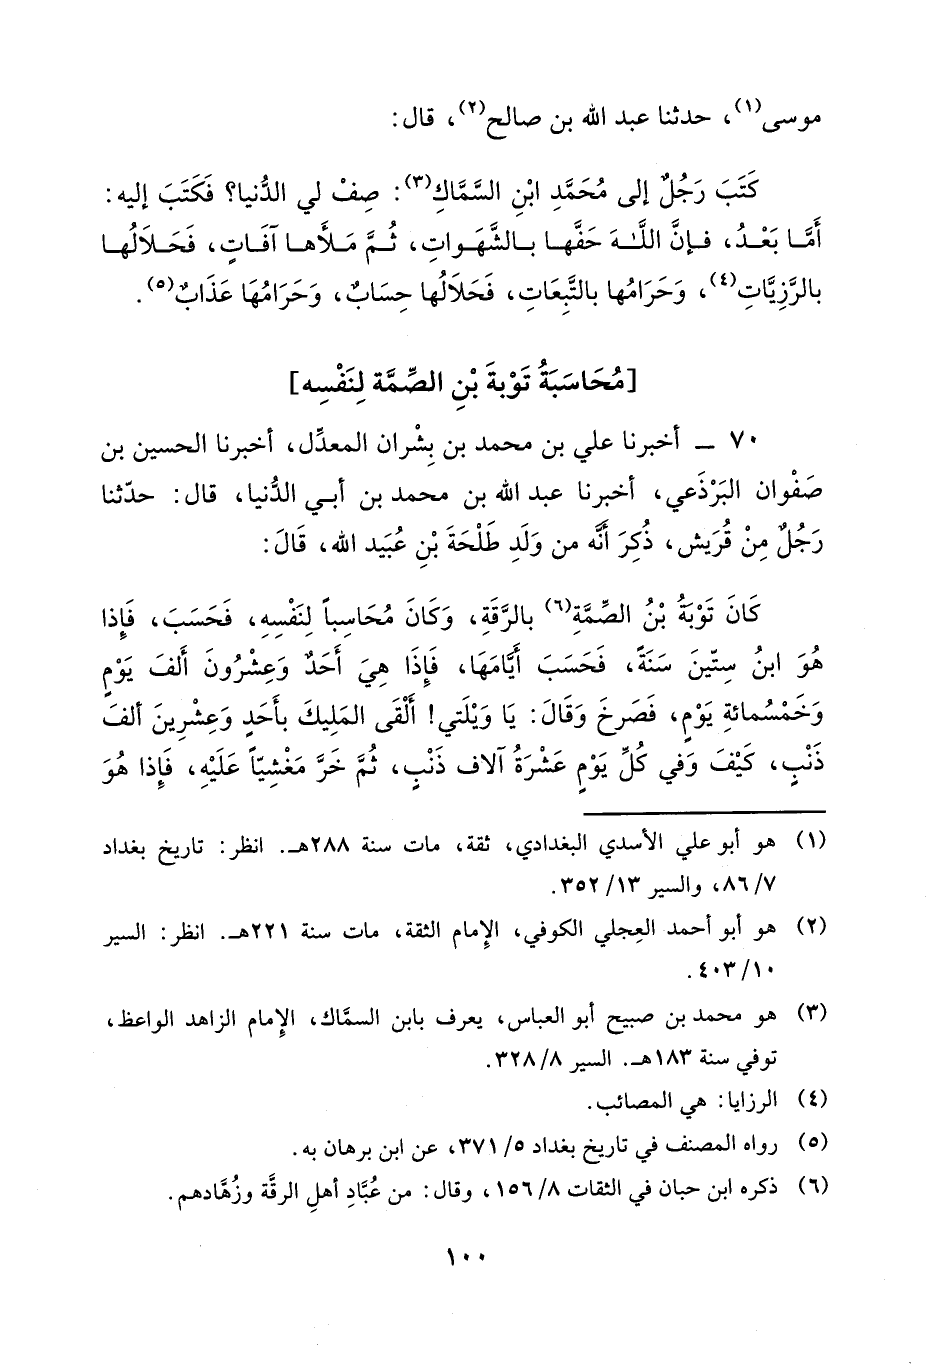 موسى(١)، حدثنا عبد الله بن صالح(٢)، قال:
كَتَبَ رَجُلٌ إلى مُحَمَّدِ ابْنِ السَّمَّاكِ(٣): صِفْ لي الدُّنيا؟ فَكَتَبَ إليه:
أَمَّا بَعْدُ، فإنَّ اللَّهَ حَفَّها بالشَّهَواتِ، ثُمَّ مَلأَها آفَاتٍ، فَحَلالُها
بالرَّزِيَّاتِ(٤)، وَحَرَامُها بالتَّبِعَاتِ، فَحَلالُها حِسَابٌ، وَحَرَامُهَا عَذَابٌ(٥).
[مُحَاسَبَةُ تَوْبةَ بْنِ الصِّمَّة لِنَفْسِه]
٧٠ ــ أخبرنا علي بن محمد بن بِشْران المعدِّل، أخبرنا الحسين بن
صَفْوان البَرْذَعي، أخبرنا عبد الله بن محمد بن أبي الدُّنيا، قال: حدّثنا
رَجُلٌ مِنْ قُرَيش، ذُكِرَ أنَّه من وَلَدِ طَلْحَةَ بْنِ عُبَيد الله، قَالَ:
كَانَ تَوْبَةُ بْنُ الصِّمَّةِ(٦) بالرَّقَةِ، وَكَانَ مُحَاسِباً لِنَفْسِهِ، فَحَسَبَ، فَإِذا
هُوَ ابنُ سِتّينَ سَنَةً، فَحَسَبَ أَيَّامَهَا، فَإِذَا هِيَ أَحَدٌ وَعِشْرُونَ ألفَ يَوْمٍ
وَخَمْسُمائةِ يَوْمٍ، فَصَرخَ وَقَالَ: يَا وَيْلَتي! أَلْقَى المَلِيكَ بأَحَدٍ وَعِشْرِينَ ألفَ
ذَنْبٍ، كَيْفَ وَفي كُلِّ يَوْمٍ عَشْرَةُ آلاف ذَنْبٍ، ثُمَّ خَرَّ مَغْشِيّاً عَلَيْهِ، فَإِذا هُوَ
(١) هو أبو علي الأسدي البغدادي، ثقة، مات سنة ٢٨٨هـ. انظر: تاريخ بغداد
٨٦/٧، والسير ٣٥٢/١٣.
(٢) هو أبو أحمد العِجلي الكوفي، الإمام الثقة، مات سنة ٢٢١هـ. انظر: السير
٤٠٣/١٠.
(٣) هو محمد بن صبيح أبو العباس، يعرف بابن السمَّاك، الإمام الزاهد الواعظ،
توفي سنة ١٨٣هـ. السير ٣٢٨/٨.
(٤) الرزايا: هي المصائب.
(٥) رواه المصنف في تاريخ بغداد ٣٧١/٥، عن ابن برهان به.
(٦) ذكره ابن حبان في الثقات ١٥٦/٨، وقال: من عُبَّادِ أهلِ الرقَّة وزُهَّادهم.
١٠٠